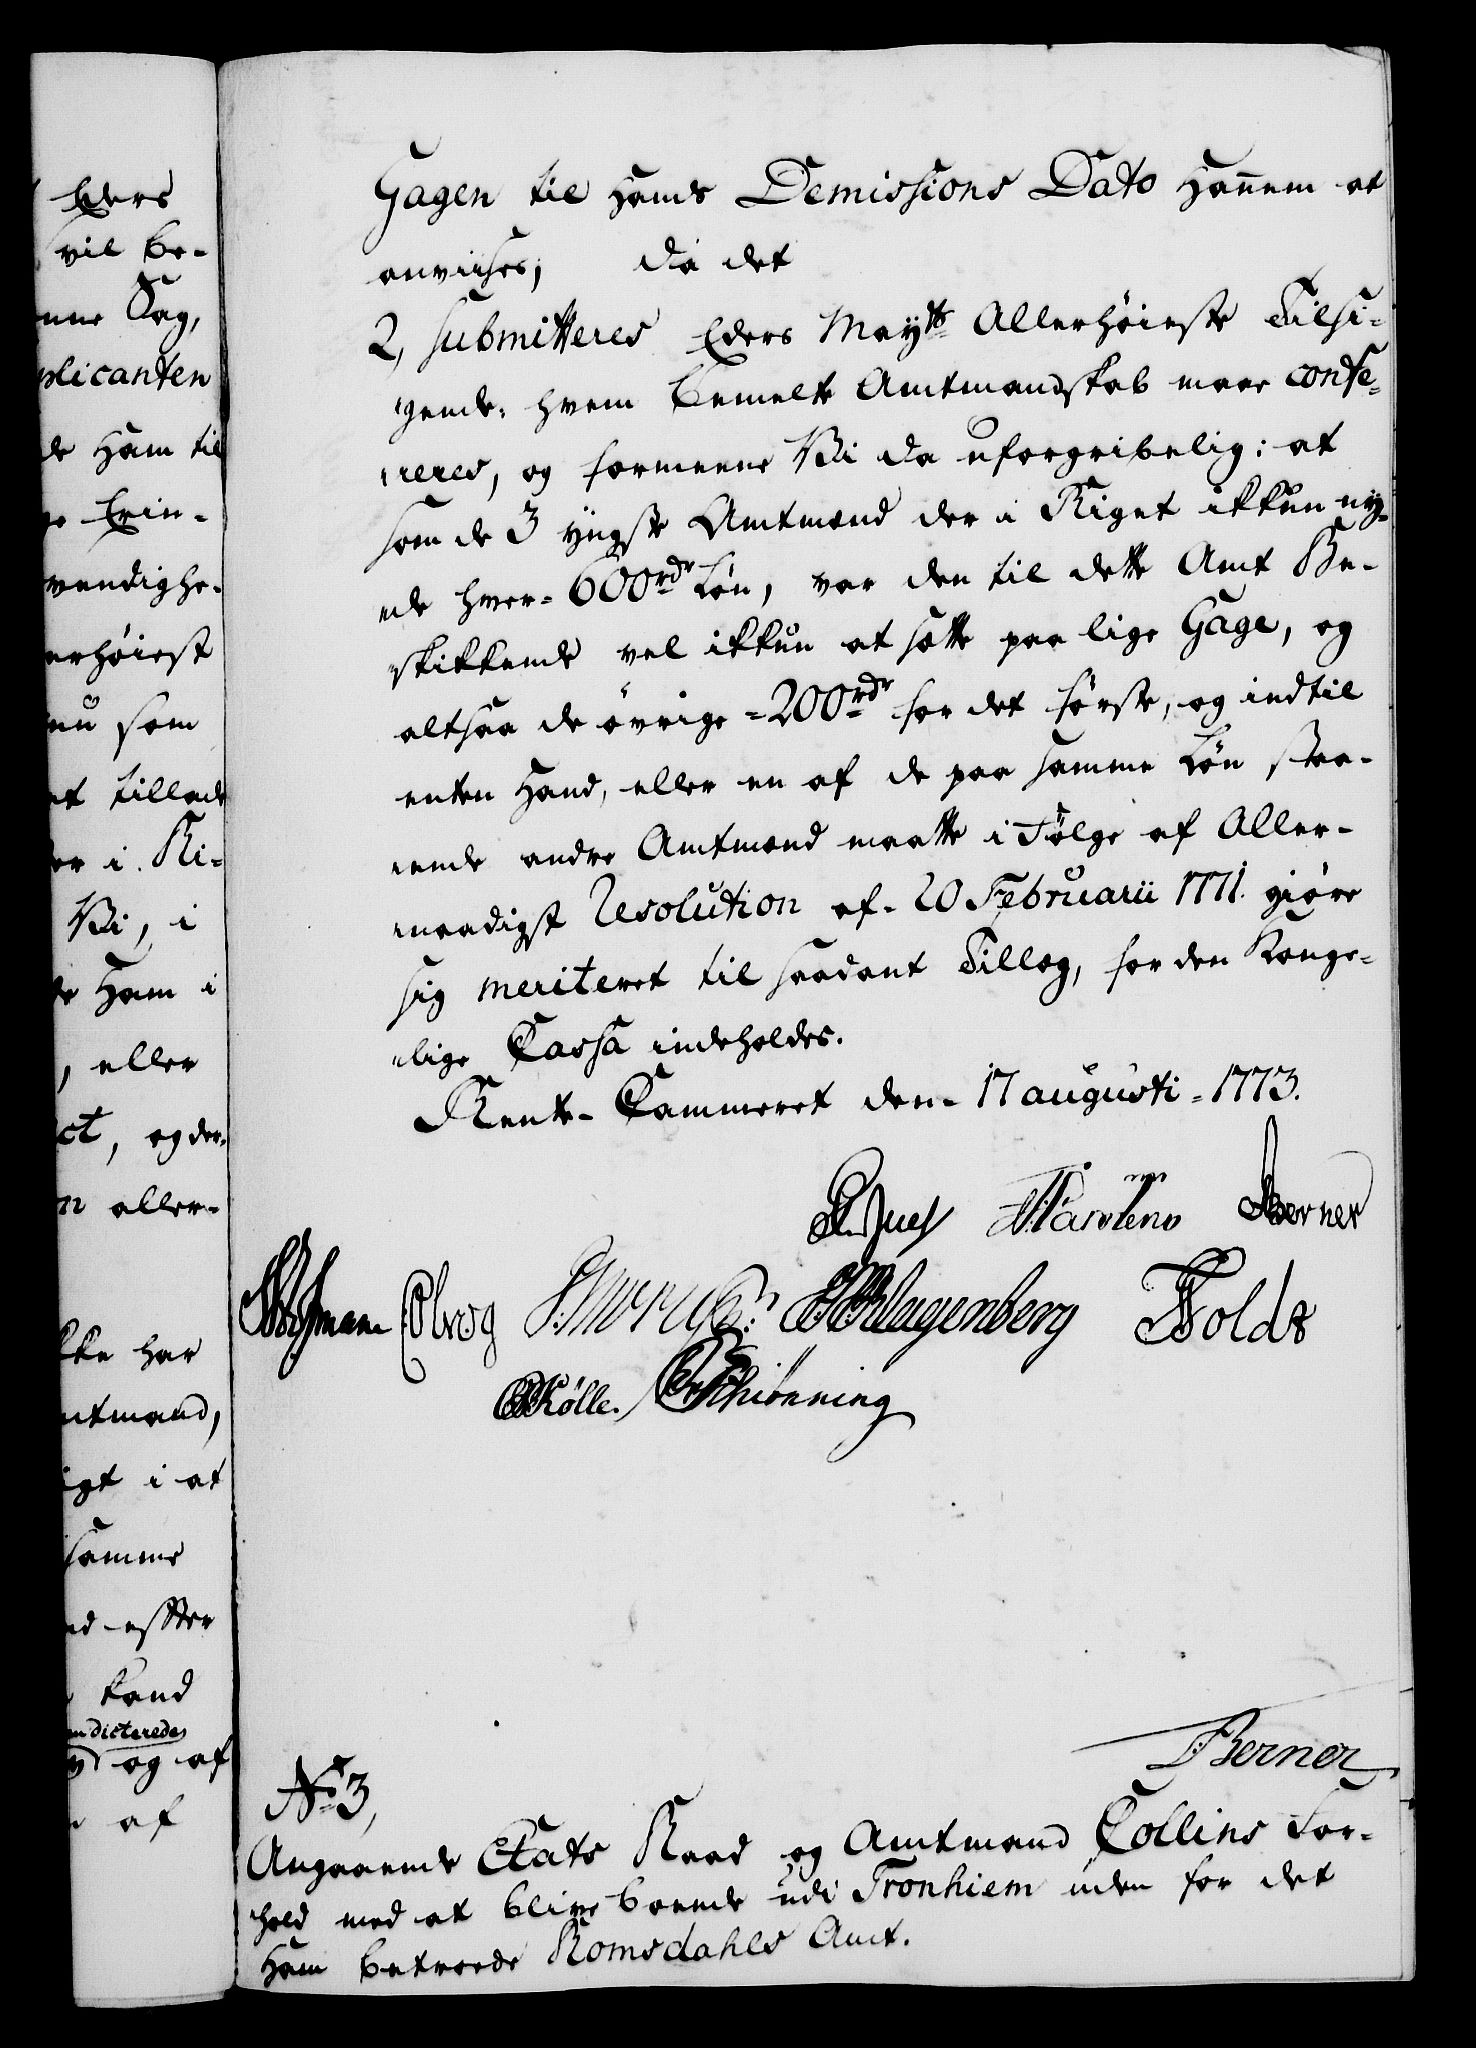 Eders
vil be-
nne Sag,
plicanten
de Ham til
ge Erin-
vendighe-
erhöiest
nu som
et tillade
er i Ri-
Vi, i
de Ham i
, eller
ct, og der-
n aller-
kke har
mtmand,
igt i at
samme
nd efter
kand
ndicterede
og af
af
Gagen til Hands Demissions Dato Hannem at
anvises; da det
2, submitteres Eders Mayts Allerhöieste Tilsi-
gende, hvem bemelte Amtmandskab maae confe-
reres, og formeene Vi da uforgribelig: at
som de 3 yngste Amtmænd der i Riget ikkun ny-
de hver 600rdr Løn, var den til dette Amt Be-
skikkende vel ikkun at sætte paa lige Gage, og
altsaa de övrige 200rdr for det förste, og indtil
enten Hand, eller en af de paa samme Løn staa-
ende andre Amtmænd maatte i Følge af Aller-
naadigst Resolution af 20 Februarii 1771. giøre
sig meriteret til saadant Tillæg, for den Konge-
lige Cassa indeholdes.
Rente-Cammeret den 17 augusti 1773.
Juel Martens Berner
Obrog Klagenberg Holdt
Kölle. Schiönning
Berner
No 3,
Angaaende Etats Raad og Amtmand Collins For-
hold med at blive boende udi Tronhiem uden for det
Ham betroede Romsdahls Amt.